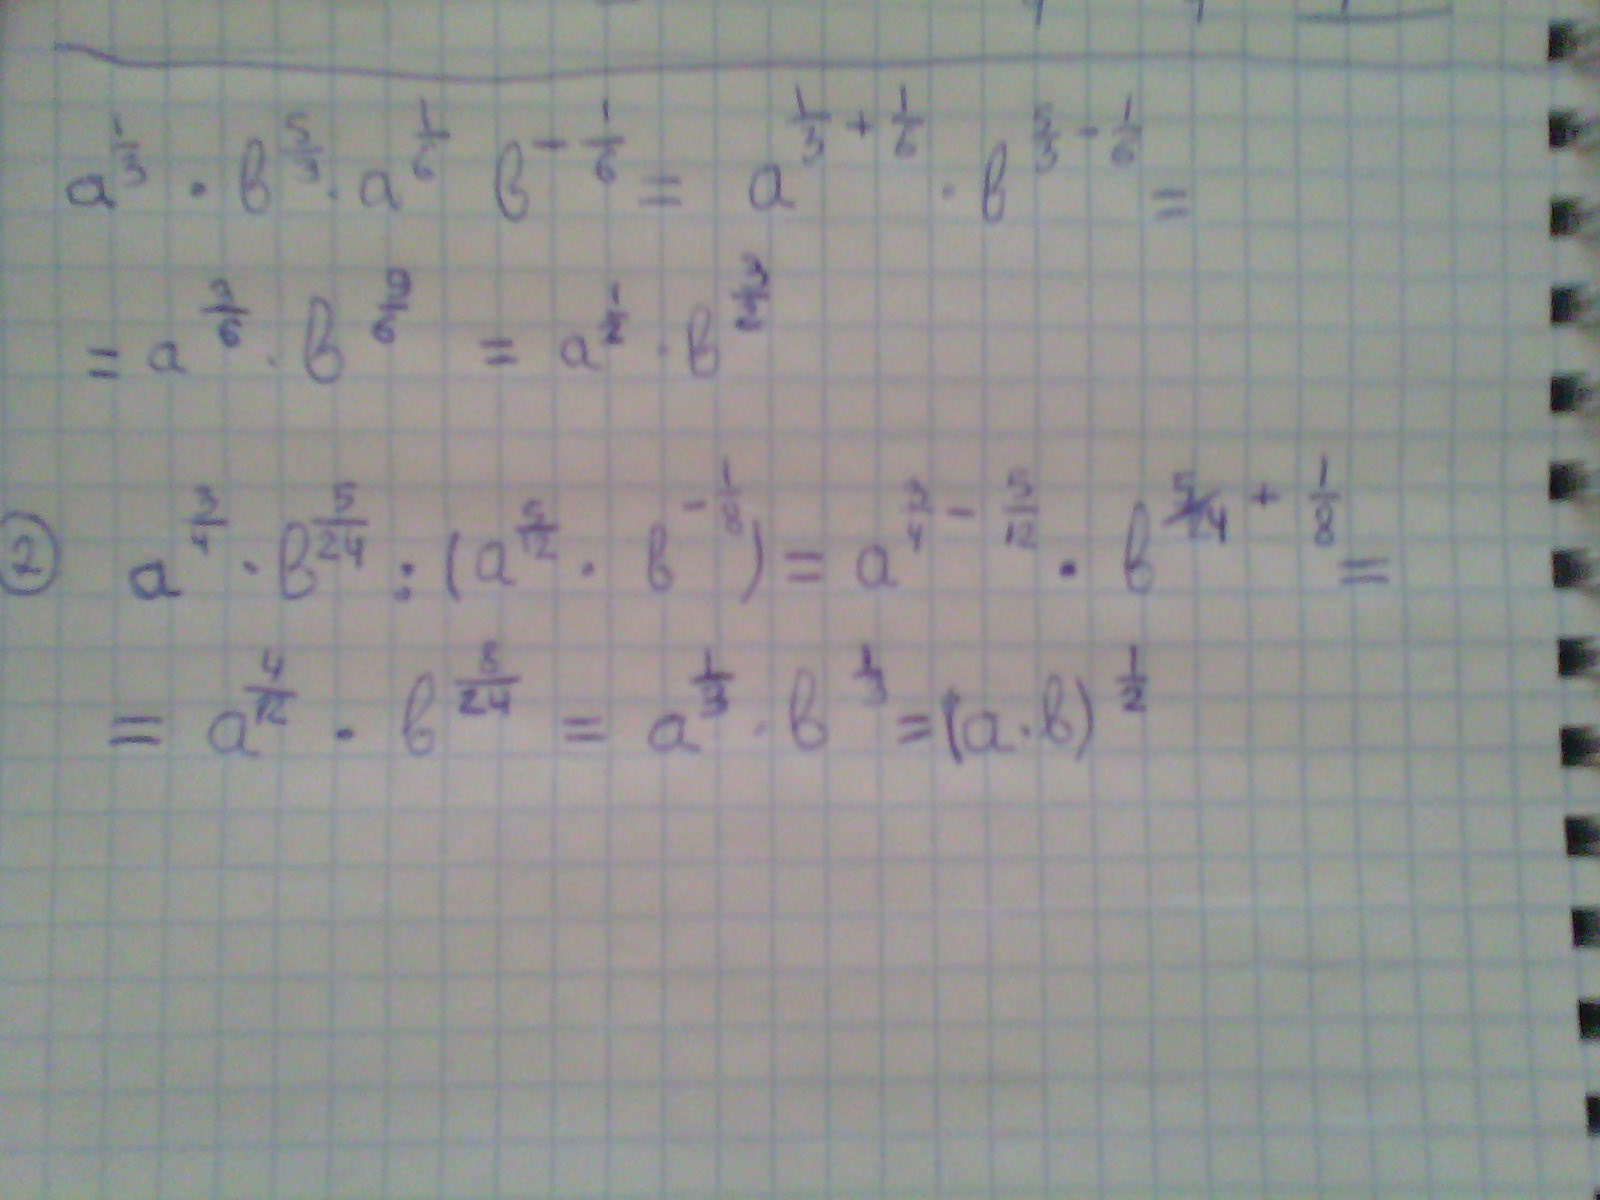 a^(1/3) · b^(5/3) · a^(1/6) b^(-1/6) = a^(1/3 + 1/6) · b^(5/3 - 1/6) =
= a^(3/6) · b^(9/6) = a^(1/2) · b^(3/2)
② a^(3/4) · b^(5/24) : (a^(5/12) · b^(-1/8)) = a^(3/4 - 5/12) · b^(5/24 + 1/8) =
= a^(4/12) · b^(8/24) = a^(1/3) · b^(1/3) = (a · b)^(1/2)